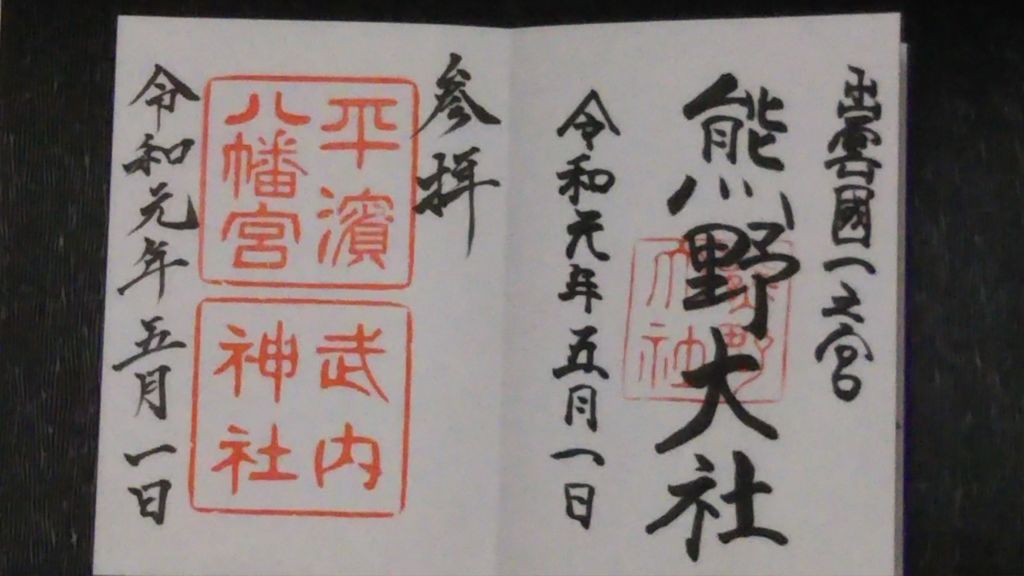 出雲國一之宮
熊野大社
熊野
大社
令和元年五月一日
参拝
平濱
八幡宮
武内
神社
令和元年五月一日